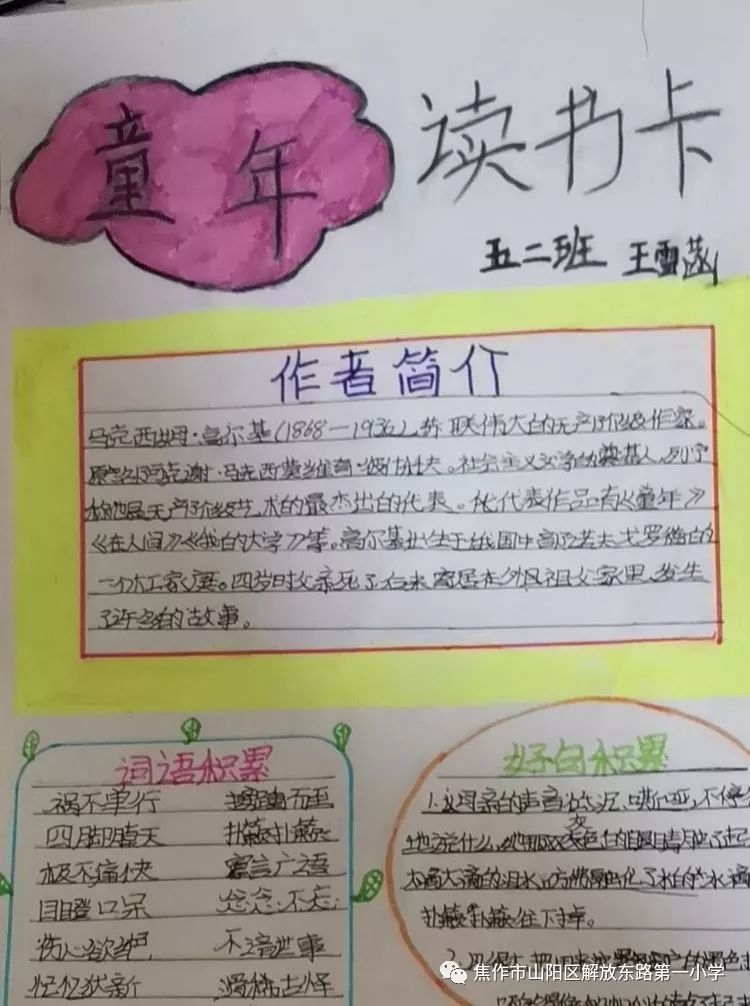 童年
读书卡
五二班 王雪菡
作者简介
马克西姆·高尔基(1868—1936),苏联伟大的无产阶级作家。
原名阿列克谢·马克西莫维奇·彼什科夫。社会主义文学的奠基人,列宁
称他是无产阶级艺术的最杰出的代表。他代表作品有《童年》
《在人间》《我的大学》等。高尔基出生于俄国中高尔诺夫戈罗德的
一个木工家庭。四岁时父亲死了后来寄居在外祖父家里,发生
了许多的故事。
词语积累
祸不单行
四脚朝天 扑簌扑簌
极不痛快 寡言广语
目瞪口呆 念念不忘
伤心欲绝 不谙世事
记忆犹新 滑稽古怪
好句积累
1.母亲的声音 不停
地说什么,她那双灰色的眼睛
大滴大滴的泪水, 水滴
扑簌扑簌往下掉。
2.
焦作市山阳区解放东路第一小学